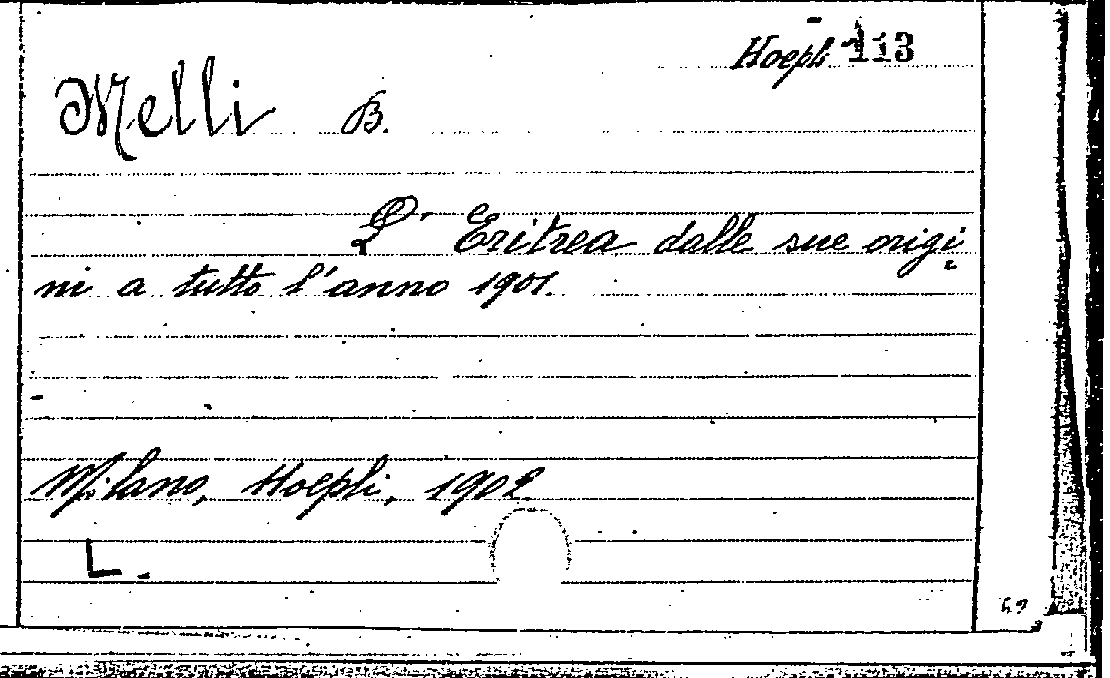 Hoepli 113
Melli B.
L' Eritrea dalle sue origi
ni a tutto l'anno 1901.
Milano, Hoepli, 1902
L.